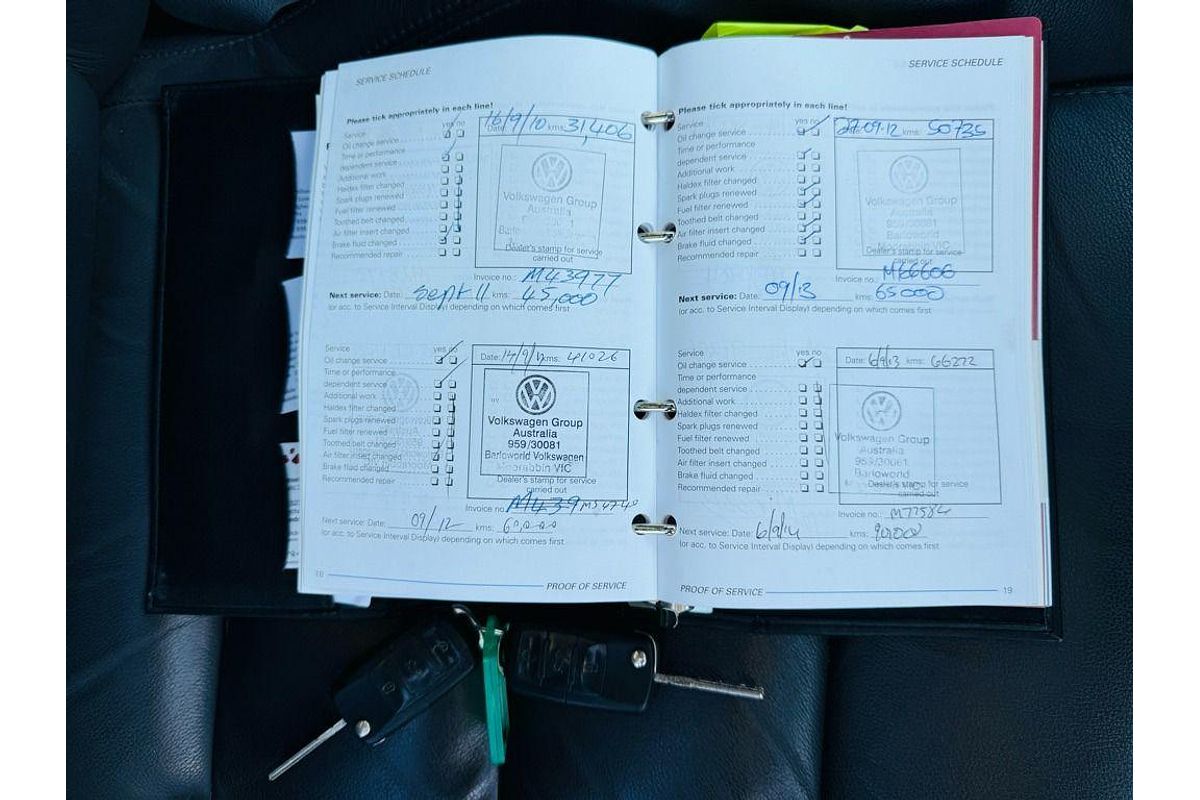 SERVICE SCHEDULE
Please tick appropriately in each line!
yes no
Service
Oil change service
Time or performance
dependent service
Additional work
Haldex filter changed
Spark plugs renewed
Fuel filter renewed
Toothed belt changed
Air filter insert changed
Brake fluid changed
Recommended repair
Date: 16/9/10 kms: 31,406
Volkswagen Group
Australia
Dealer's stamp for service
carried out
Invoice no.: M43977
Next service: Date: Sept 11 kms: 45,000
(or acc. to Service Interval Display) depending on which comes first
Service yes no
Oil change service
Time or performance
dependent service
Additional work
Haldex filter changed
Spark plugs renewed
Fuel filter renewed
Toothed belt changed
Air filter insert changed
Brake fluid changed
Recommended repair
Date: 14/9/ kms: 41026
Volkswagen Group
Australia
959/30081
Barloworld Volkswagen
Moorabbin VIC
Dealer's stamp for service
carried out
Invoice no. M439
Next service: Date: 09/12 kms: 60,000
(or acc. to Service Interval Display) depending on which comes first
PROOF OF SERVICE
SERVICE SCHEDULE
Please tick appropriately in each line!
Service yes no
Oil change service
Time or performance
dependent service
Additional work
Haldex filter changed
Spark plugs renewed
Fuel filter renewed
Toothed belt changed
Air filter insert changed
Brake fluid changed
Recommended repair
27.09.12 kms: 50735
Volkswagen Group
Australia
Barloworld
Moorabbin VIC
Dealer's stamp for service
carried out
Invoice no.: M66606
Next service: Date: 09/13 kms: 65000
(or acc. to Service Interval Display) depending on which comes first
Service yes no
Oil change service
Time or performance
dependent service
Additional work
Haldex filter changed
Spark plugs renewed
Fuel filter renewed
Toothed belt changed
Air filter insert changed
Brake fluid changed
Recommended repair
Date: 6/9/13 kms: 66222
Volkswagen Group
Australia
959/30081
Barloworld
Dealer's stamp for service
carried out
Invoice no.: M77582
Next service: Date: 6/9/14 kms:
(or acc. to Service Interval Display) depending on which comes first
PROOF OF SERVICE 19